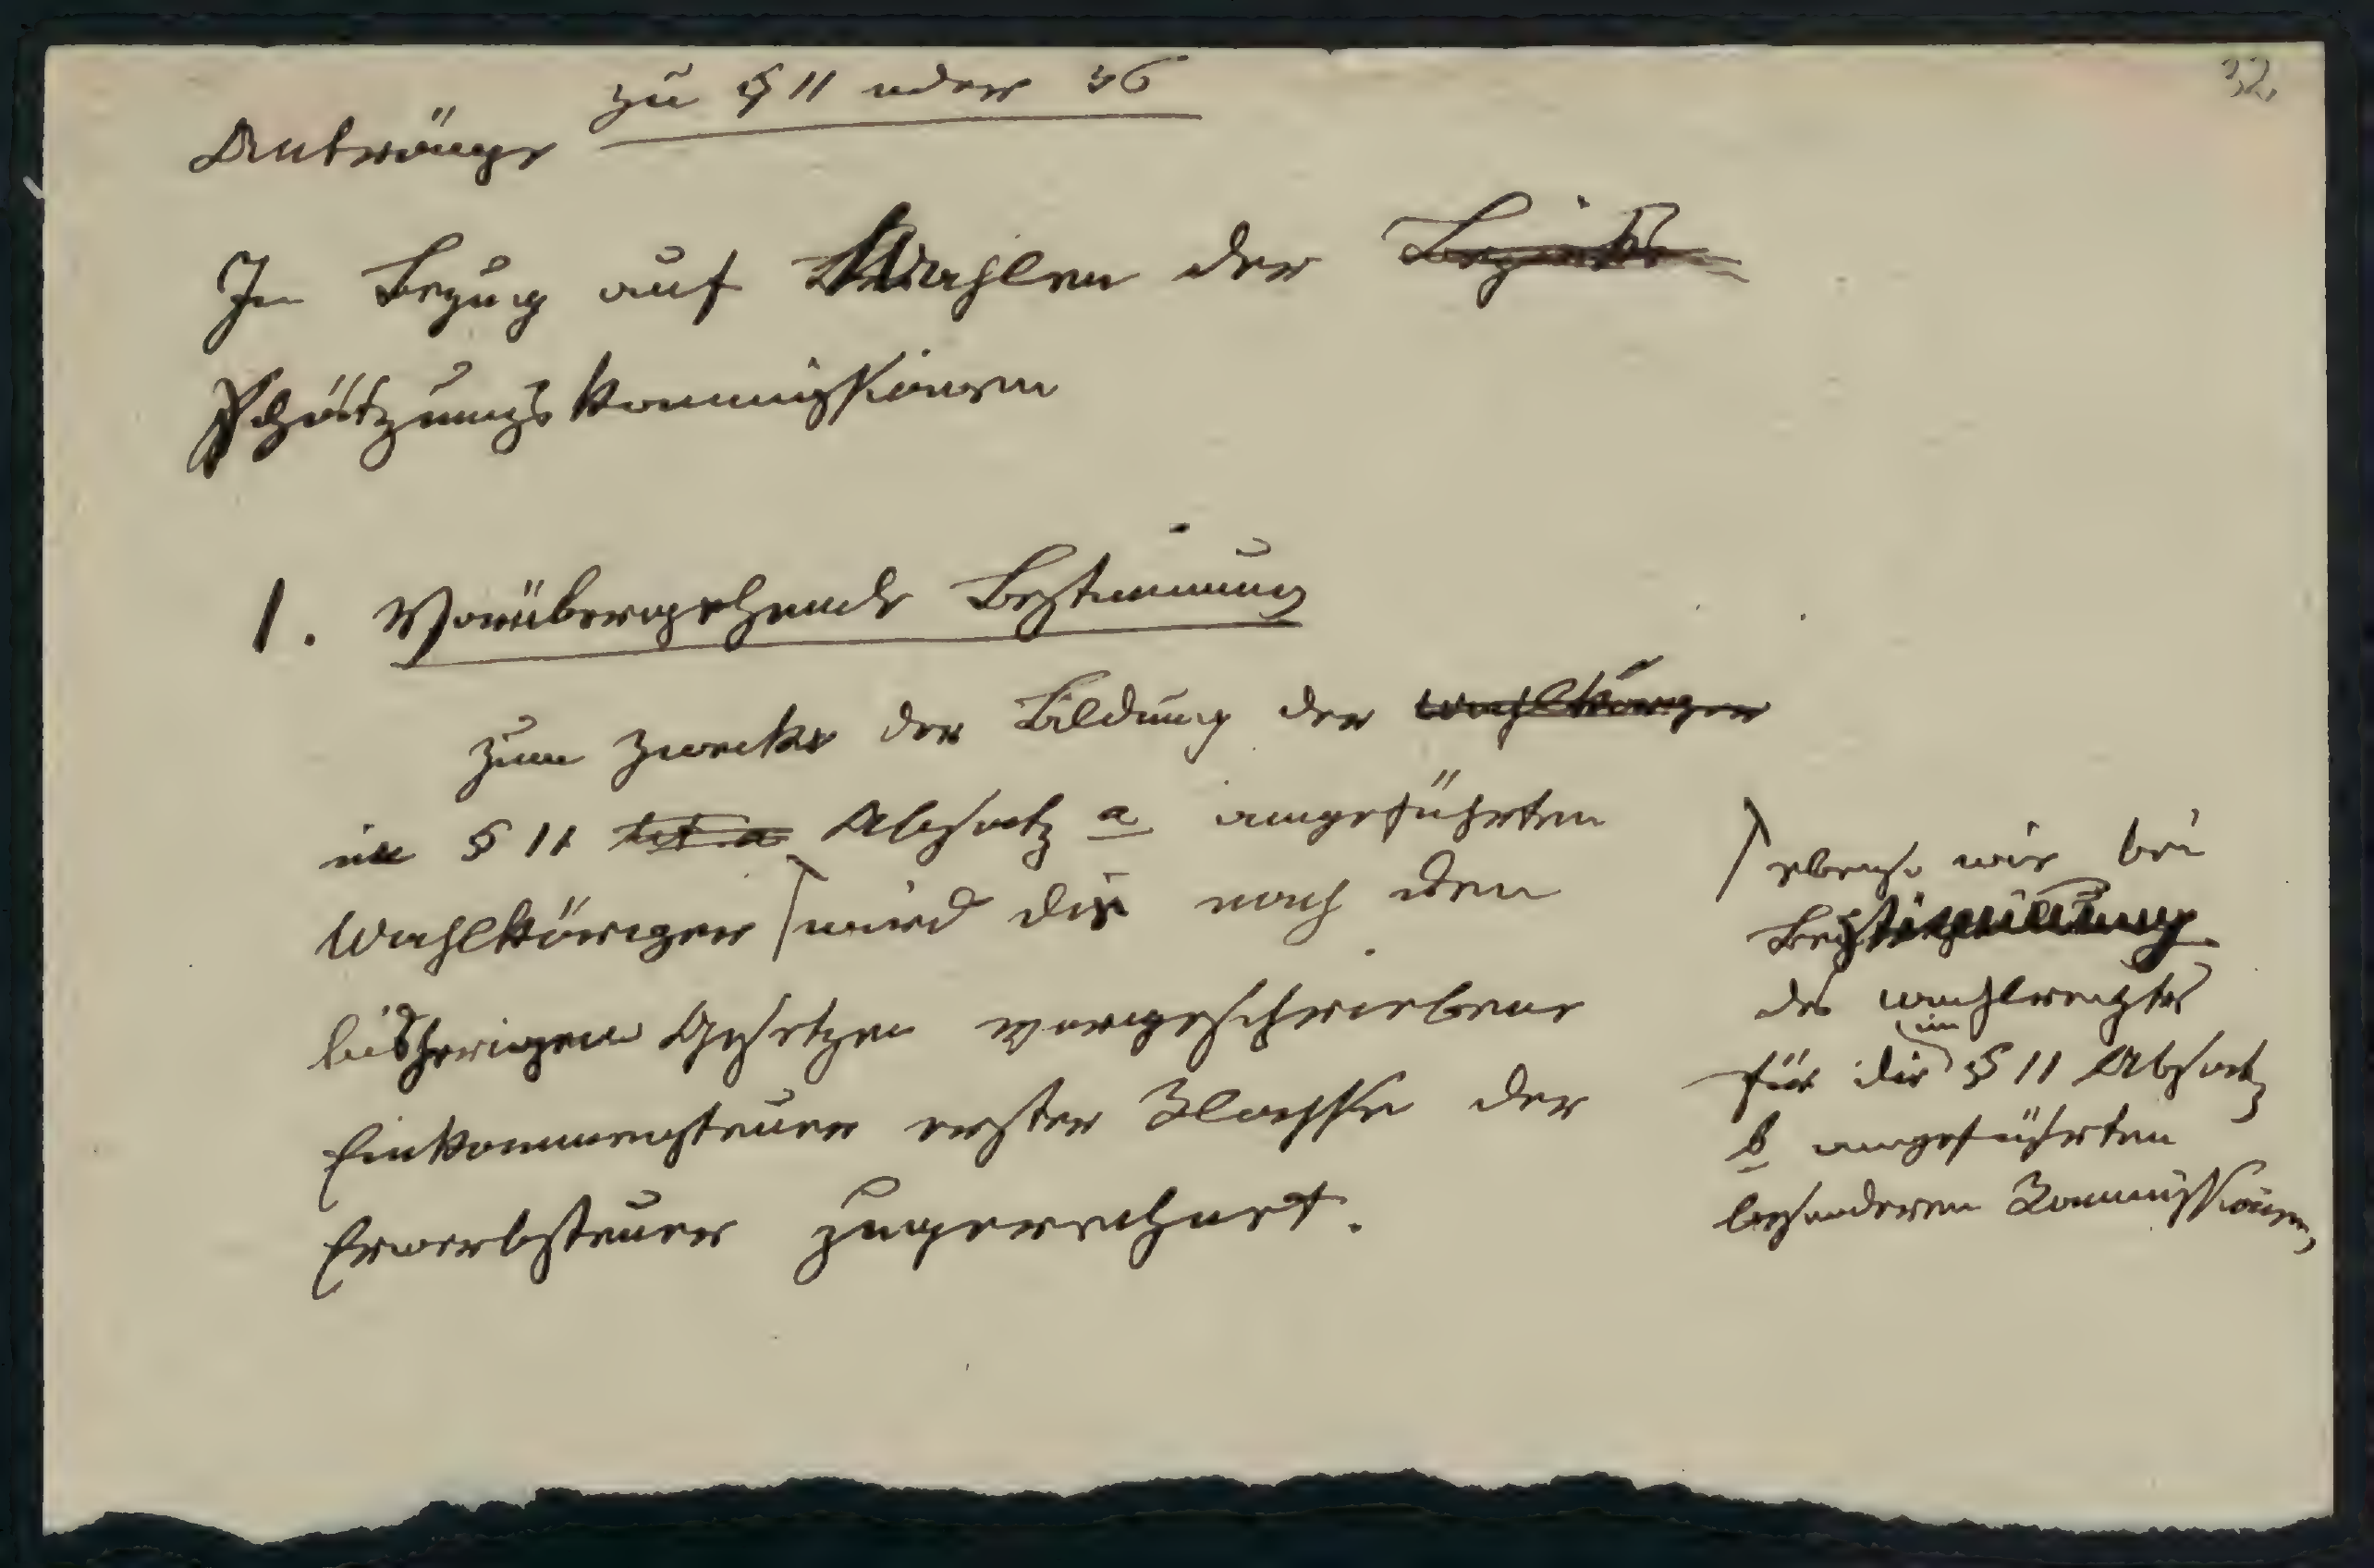 32
zu § 11 oder 36
Anträge
In Bezug auf Wahlen der Bezirks
Schätzungskommissionen
1. Vorübergehende Bestimmung
Zum Zwecke der Bildung der Wahlkörper
im § 11 lit. a Absatz a angeführten
Wahlkörper wird die nach den
bisherigen Gesetzen vorgeschriebene
Einkommensteuer erster Klasse der
Erwerbsteuer zugerechnet.
ebenso wie bei
des Wahlrechtes
im
für die § 11 Absatz
b angeführten
besonderen Kommissionen,